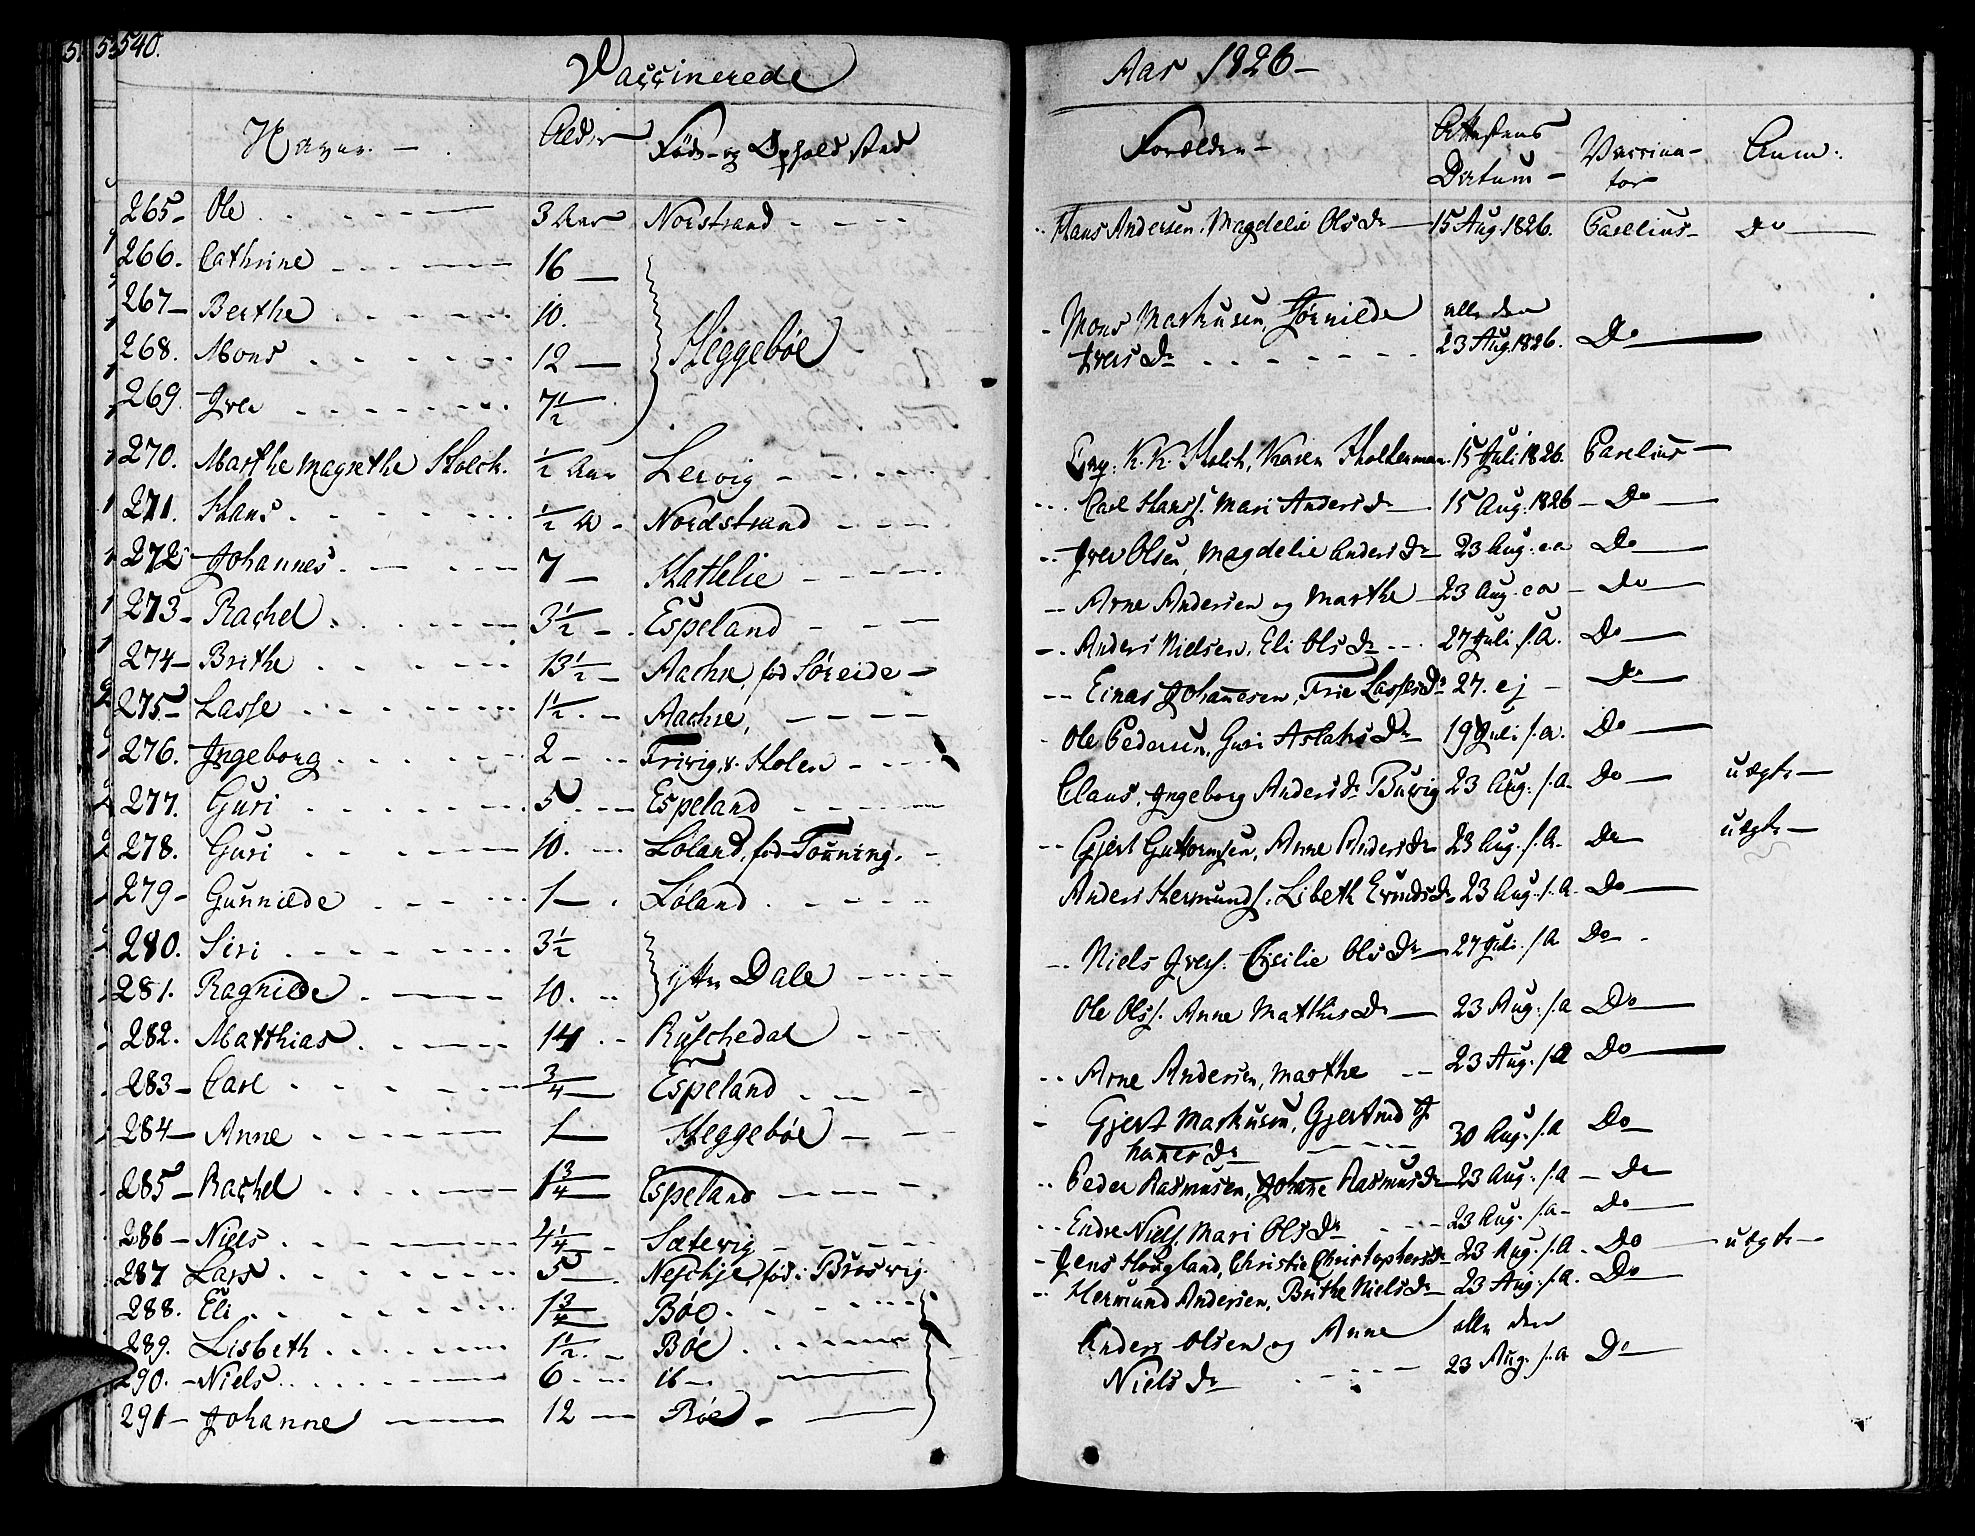 540.
Vaccinerede Aar 1826 —
Navne. — Alder Føde- og Opholdsted Forældre — Attestens Datum — Vaccina-tor Anm.
265 — Ole 3 Aar Norstrand Hans Andersen, Magdelie Olsdr 15 Aug 1826. Carelius — Do
266. Cathrine 16 —
267 — Berthe 10. Heggebøe Mons Markusen, Jørnilde alle den
268. Mons 12 — Iversdr 23 Aug. 1826. Do
269. Iver 7 1/2
270. Marthe Magrethe Holck. 1/2 Aar Lervig K. K. Holck, Karen Holterman 15 Juli 1826. Carelius —
271. Hans 1/2 A — Nordstrand Carl Hanss. Mari Andersdr 15 Aug. 1826 — Do
272 Johannes 7 — Hatlelie Iver Olsen, Magdelie Andersdr 23 Aug. Do
273 — Rachel 3 1/2 Espeland Arne Andersen og Marthe 23 Aug. Do
274 — Brithe 13 1/2 Aachre, fød Søreide — Anders Nielsen, Eli Olsdr 27 Juli s. A. Do
275 — Lasse 1 1/2 Aachre, Einar Johannesen, Lassesdr 27. ej — Do
276. Ingeborg 2 — Holen Ole Pedersen, Guri Aslaksdr 19 Juli s. a. Do
277. Guri 5 Espeland Claus, Ingeborg Andersdr 23 Aug. s. a. Do uægte —
278. Guri 10. Løland, fød Tønning. Gjert Guttormsen, Anne Andersdr 23 Aug. s. A. Do uægte —
279 — Gunnilde 1 — Løland Anders Hermunds. Lisbeth 23 Aug. s. A. Do
280. Siri 3 1/2 Niels Ivers. Cicilie Olsdr 27 Juli s. A Do
281. Ragnilde 10. yttre Dale Ole Olss. Anne Matthisdr 23 Aug. s. a Do
282. Matthias 14 Ruschedal Arne Andersen, Marthe 23 Aug. s. a Do
283 — Carl 3/4 Espeland Gjert Markusen, Gjertrud Jo-
284 — Anne 1 Heggebøe hannesdr 30 Aug. s. a Do
285 — Rachel 1 3/4 Espeland Peder Rasmusen, Johanne Rasmusdr 23 Aug. s. A — Do
286 — Niels 4 1/4 Sætevig Endre Niels. Mari Olsdr 23 Aug. s. a — Do
287 Lars 5 Neschje, fød i Jens Hougland, Christie Christophersdr 23 Aug. s. A. Do uægte —
288. Eli 1 3/4 Bøe Hermund Andersen, Brithe Nielsdr 23 Aug. s. a. Do
289. Lisbeth 1 1/2 Bøe Anders Olsen og Anne alle den
290. — Niels 6 ib Nielsdr 23 Aug. s. a Do
291 — Johanne 12 Bøe